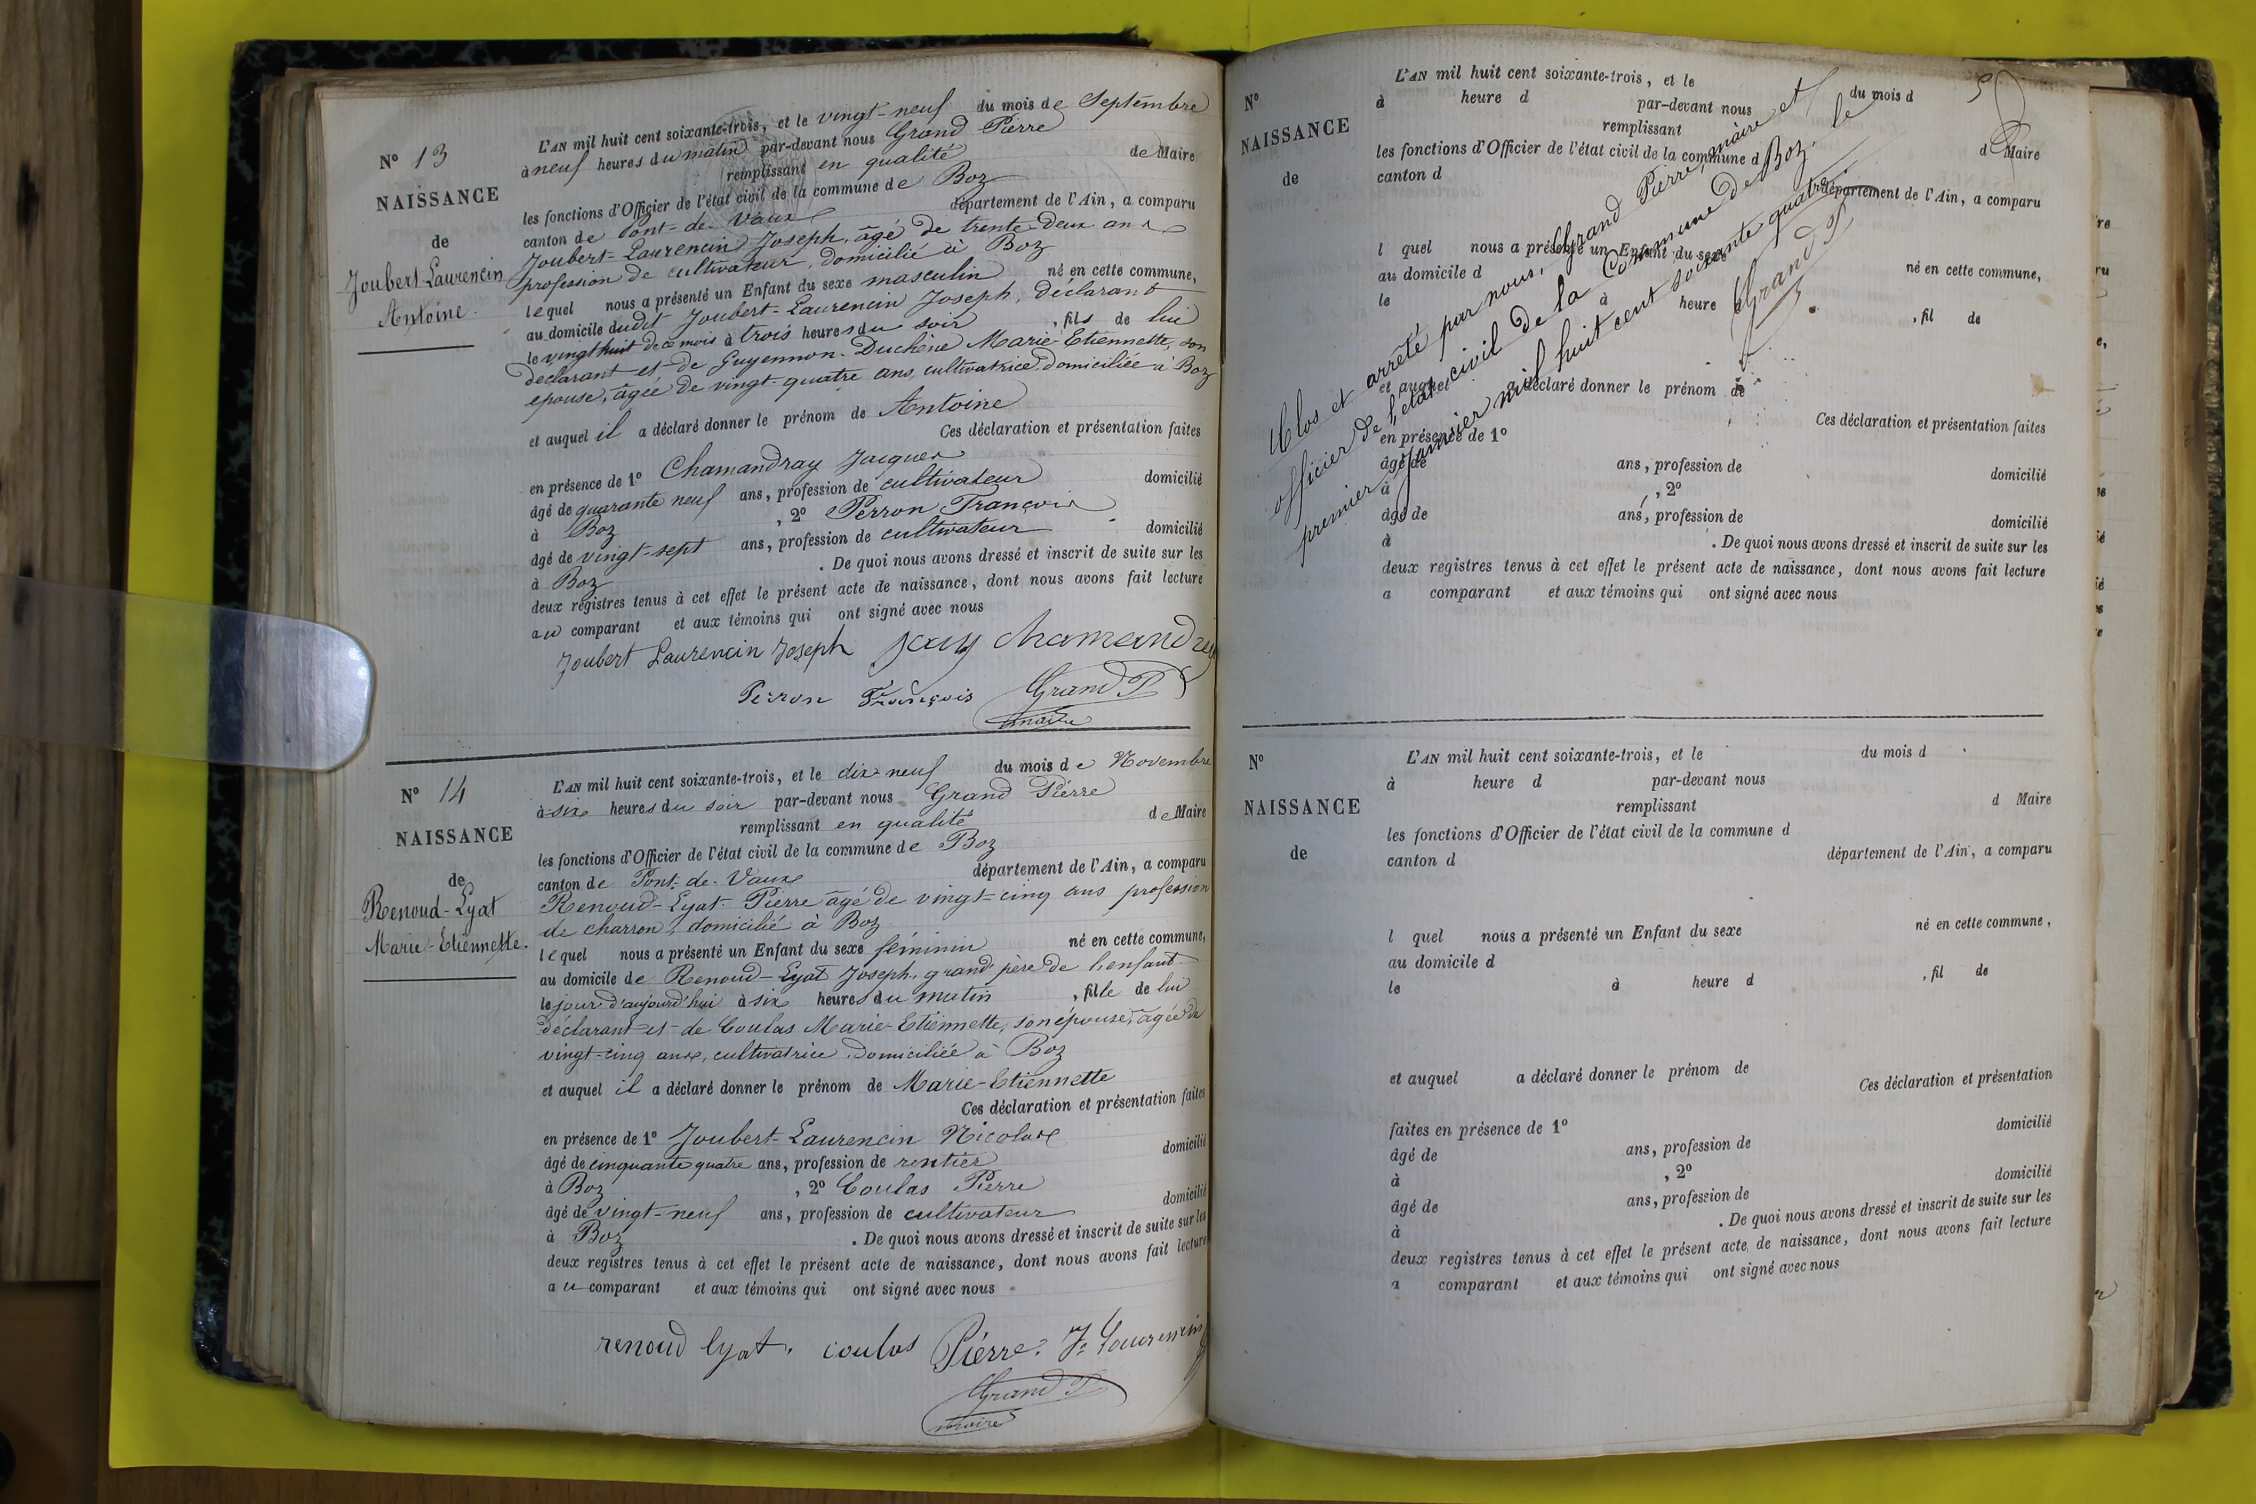 N° 13
NAISSANCE
de
Joubert-Laurencin
Antoine.
L'AN mil huit cent soixante-trois, et le vingt-neuf du mois de Septembre
à neuf heures du matin par-devant nous Grand Pierre
remplissant en qualité de Maire
les fonctions d'Officier de l'état civil de la commune de Boz
canton de Pont-de-Vaux département de l'Ain, a comparu
Joubert-Laurencin Joseph, âgé de trente-deux ans
profession de cultivateur, domicilié à Boz
lequel nous a présenté un Enfant du sexe masculin né en cette commune,
au domicile dudit Joubert-Laurencin Joseph, déclarant
le vingt huit de ce mois à trois heures du soir, fils de lui
déclarant et de Guyennon-Duchêne Marie-Etiennette, son
épouse, âgée de vingt-quatre ans, cultivatrice, domiciliée à Boz
et auquel il a déclaré donner le prénom de Antoine
Ces déclaration et présentation faites
en présence de 1° Chamandray Jacques
âgé de quarante neuf ans, profession de cultivateur domicilié
à Boz, 2° Perron François
âgé de vingt-sept ans, profession de cultivateur domicilié
à Boz. De quoi nous avons dressé et inscrit de suite sur les
deux registres tenus à cet effet le présent acte de naissance, dont nous avons fait lecture
au comparant et aux témoins qui ont signé avec nous
Joubert Laurencin Joseph
Perron François Grand P
maire
N° 14
NAISSANCE
de
Renoud-Lyat
Marie-Etiennette.
L'AN mil huit cent soixante-trois, et le dix-neuf du mois de Novembre
à six heures du soir par-devant nous Grand Pierre
remplissant en qualité de Maire
les fonctions d'Officier de l'état civil de la commune de Boz
canton de Pont-de-Vaux département de l'Ain, a comparu
Renoud-Lyat Pierre âgé de vingt-cinq ans profession
de charron, domicilié à Boz
lequel nous a présenté un Enfant du sexe féminin né en cette commune,
au domicile de Renoud-Lyat Joseph, grand père de l'enfant
le jour d'aujourd'hui à six heures du matin, fille de lui
déclarant et de Coulas Marie-Etiennette, son épouse, âgée de
vingt-cinq ans, cultivatrice, domiciliée à Boz
et auquel il a déclaré donner le prénom de Marie-Etiennette
Ces déclaration et présentation faites
en présence de 1° Joubert-Laurencin Nicolas
âgé de cinquante quatre ans, profession de rentier domicilié
à Boz, 2° Coulas Pierre
âgé de vingt-neuf ans, profession de cultivateur domicilié
à Boz. De quoi nous avons dressé et inscrit de suite sur les
deux registres tenus à cet effet le présent acte de naissance, dont nous avons fait lecture
au comparant et aux témoins qui ont signé avec nous
renoud lyat. coulas Pierre.
Grand P
maire
N°
NAISSANCE
de
L'AN mil huit cent soixante-trois, et le du mois d
à heure d par-devant nous
remplissant d Maire
les fonctions d'Officier de l'état civil de la commune d
canton d département de l'Ain, a comparu
l quel nous a présenté un Enfant du sexe né en cette commune,
au domicile d
le à heure , fil de
et auquel a déclaré donner le prénom de
Ces déclaration et présentation faites
en présence de 1°
âgé de ans, profession de domicilié
à , 2°
âgé de ans, profession de domicilié
à . De quoi nous avons dressé et inscrit de suite sur les
deux registres tenus à cet effet le présent acte de naissance, dont nous avons fait lecture
a comparant et aux témoins qui ont signé avec nous
Clos et arrêté par nous, Grand Pierre, maire et
officier de l'état civil de la Commune de Boz. le
premier Janvier mil huit cent soixante quatre
Grand P
N°
NAISSANCE
de
L'AN mil huit cent soixante-trois, et le du mois d
à heure d par-devant nous
remplissant d Maire
les fonctions d'Officier de l'état civil de la commune d
canton d département de l'Ain, a comparu
l quel nous a présenté un Enfant du sexe né en cette commune,
au domicile d
le à heure d , fil de
et auquel a déclaré donner le prénom de
Ces déclaration et présentation
faites en présence de 1°
âgé de ans, profession de domicilié
à , 2°
âgé de ans, profession de domicilié
à . De quoi nous avons dressé et inscrit de suite sur les
deux registres tenus à cet effet le présent acte de naissance, dont nous avons fait lecture
a comparant et aux témoins qui ont signé avec nous